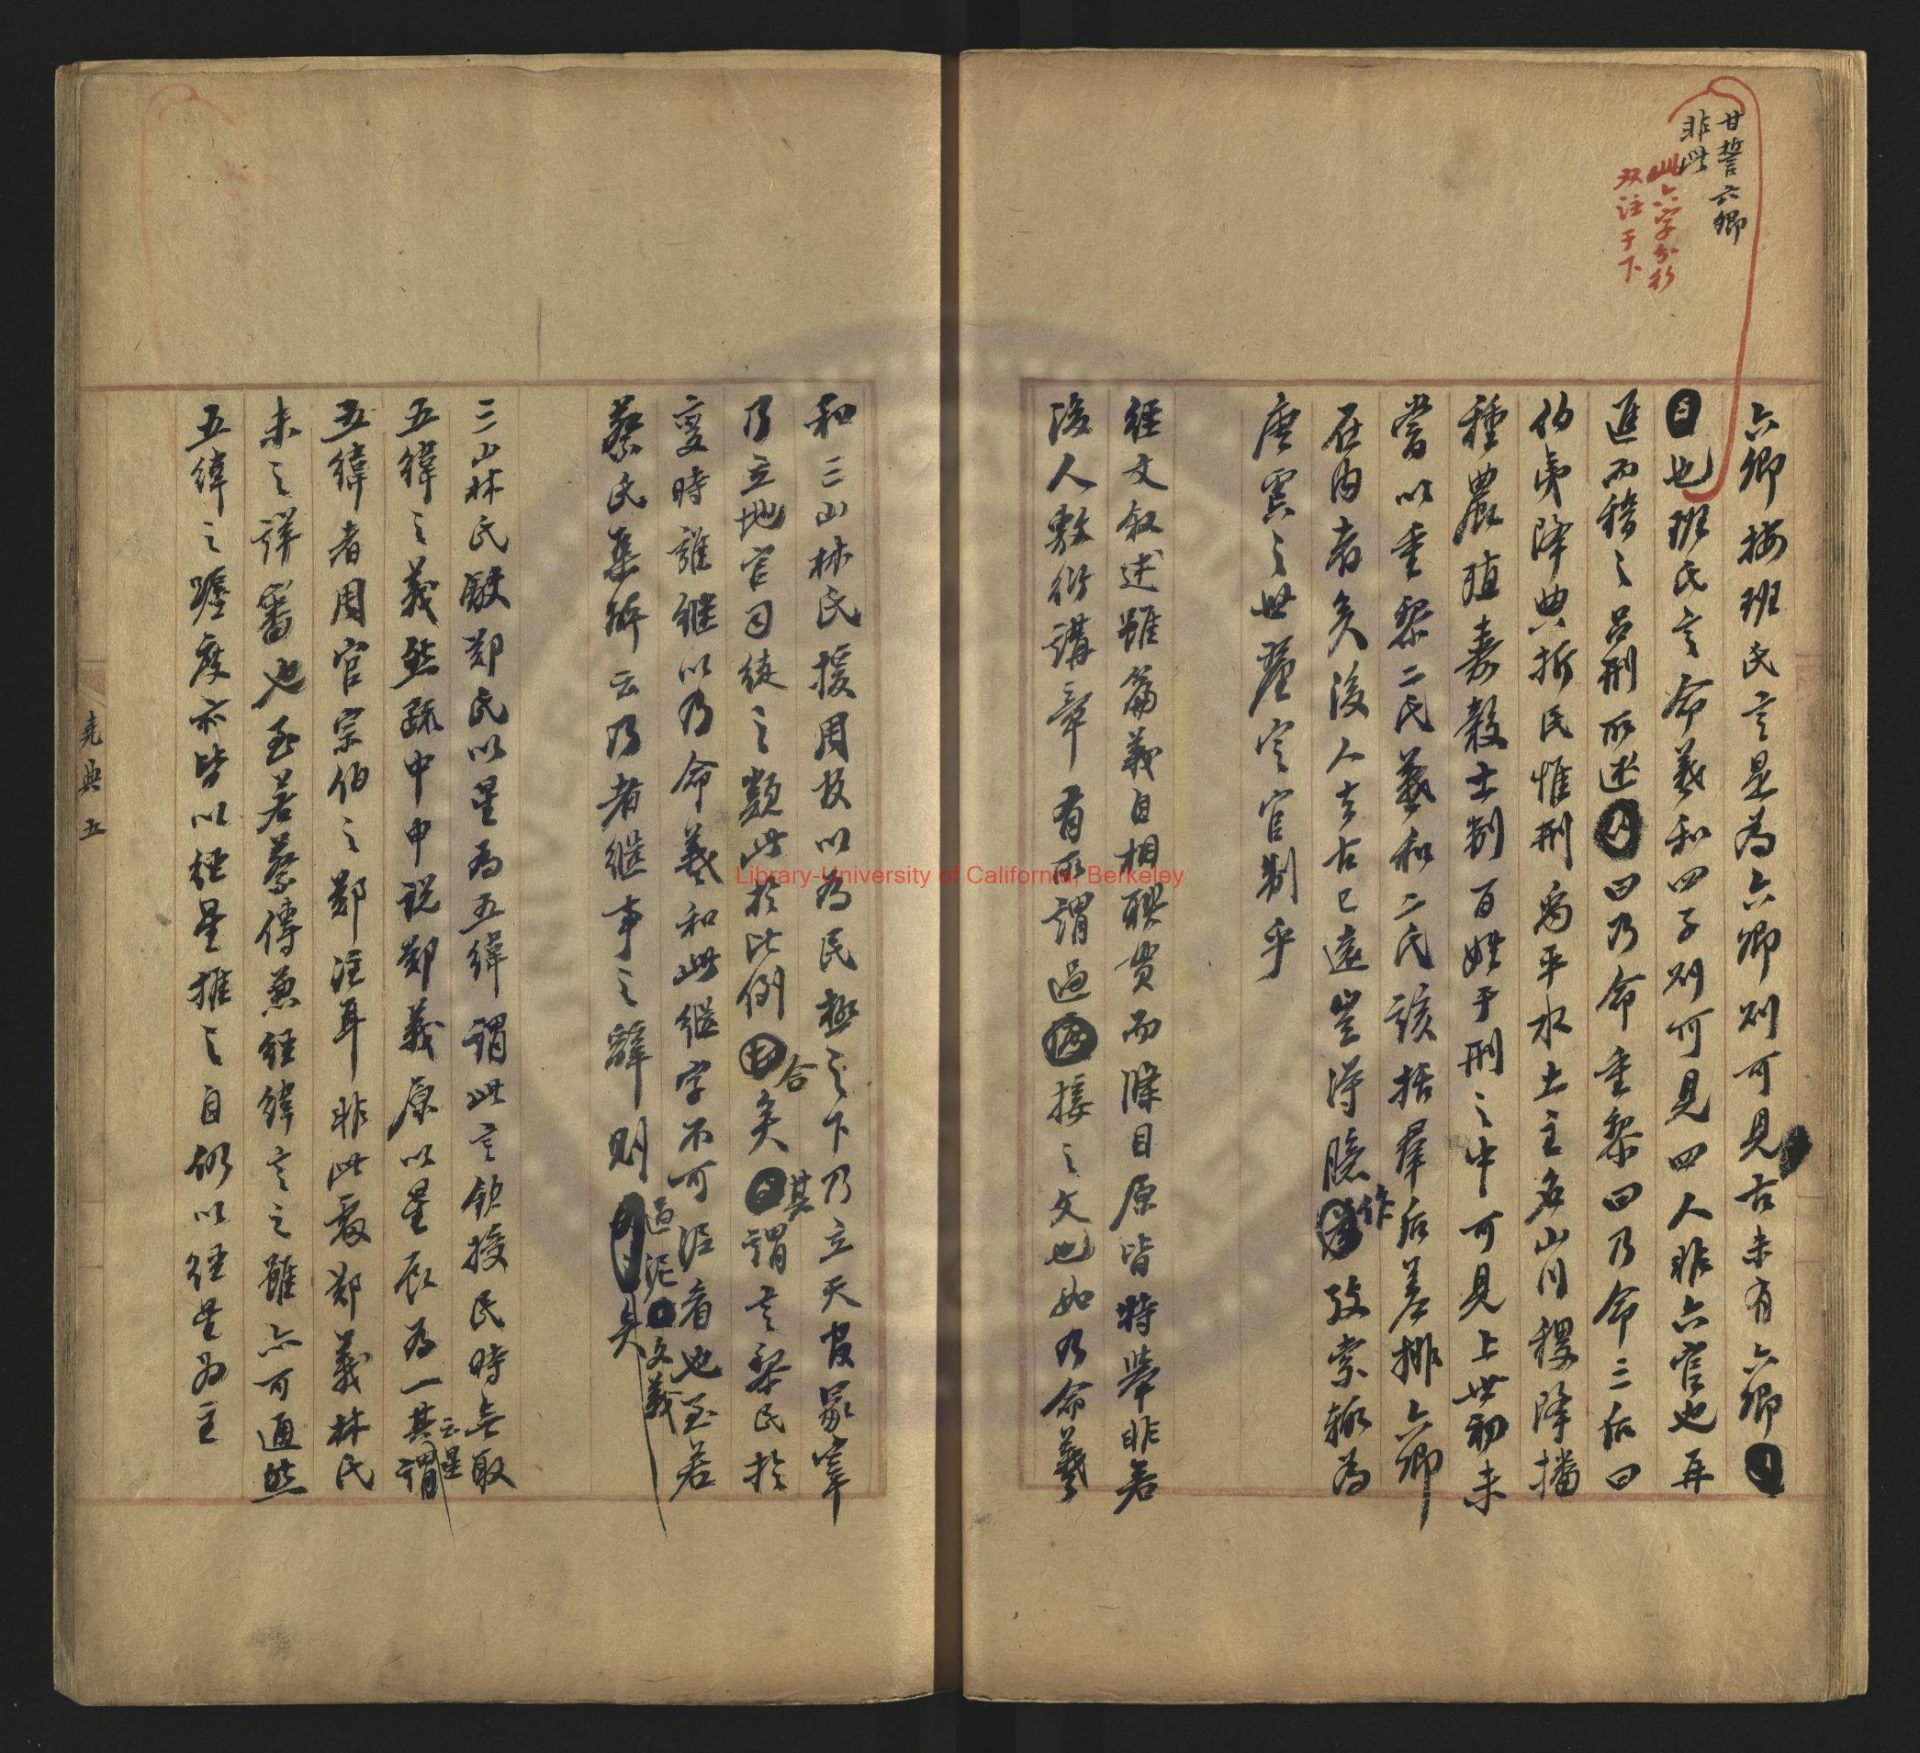 甘誓六卿
非此
此六字分行
双注于下
六卿按班氏言是為六卿則可見古未有六卿
也班氏言命羲和四子則可見四人非六官也再
進而稽之呂刑所述曰乃命重黎曰乃命三后曰
伯夷降典折民惟刑禹平水土主名山川稷降播
種農殖嘉穀士制百姓于刑之中可見上世初未
嘗以重黎二氏羲和二氏該括羣后差排六卿
在內者矣後人去古已遠豈得臆作攷索輒為
唐虞之世釐定官制乎
經文叙述雖篇義自相聯貫而條目原皆特舉非若
後人敷衍講章有所謂過接之文也如乃命羲
和三山林氏援周攷以為民極之下乃立天官冢宰
乃立地官司徒之類此於比例合矣其謂言黎民於
變時雍繼以乃命羲和此繼字不可泥看也至若
蔡氏集解云乃者繼事之辭則過泥文義矣
三山林氏駁鄭氏以星為五緯謂此言欽授民時無取
五緯之義然疏中申說鄭義原以星辰為一其謂云星
五緯者周官宗伯之鄭注耳非此處鄭義林氏
未之詳審也至若蔡傳兼經緯言之雖亦可通然
五緯之躔度亦皆以經星推之自仍以經星為主
堯典 五
Library-University of California, Berkeley